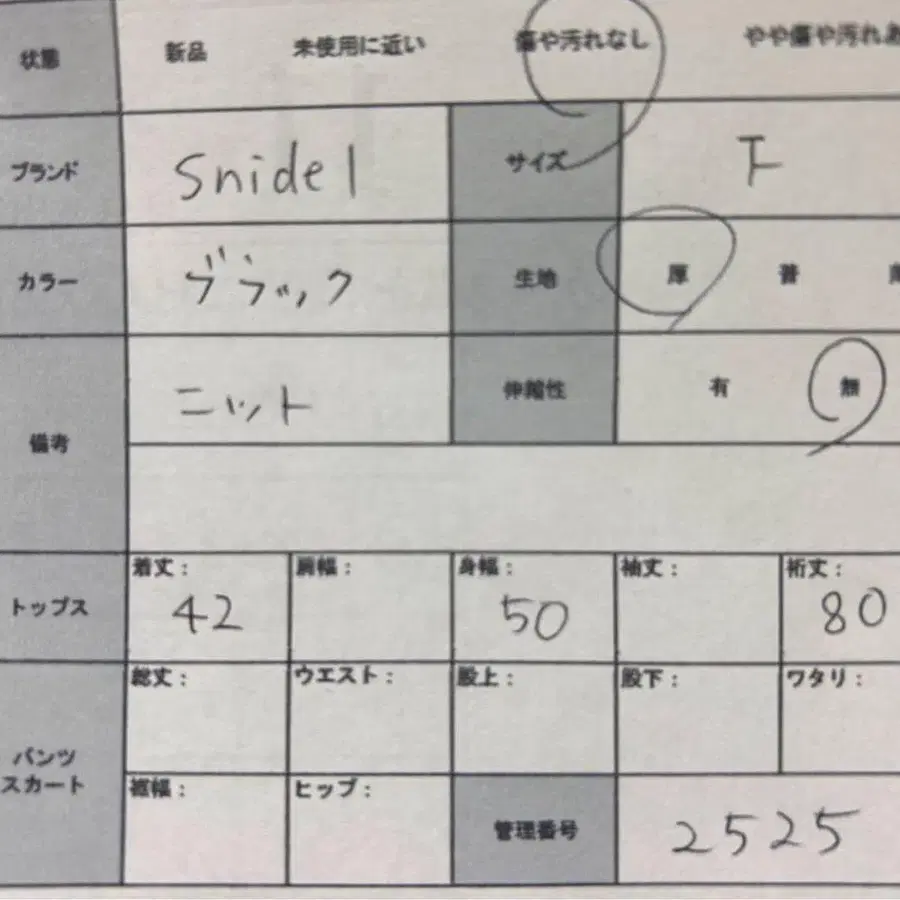 状態 新品 未使用に近い 傷や汚れなし やや傷や汚れあ
ブランド snidel サイズ F
カラー ブラック 生地 厚 普 薄
備考 ニット 伸縮性 有 無
トップス 着丈: 42 肩幅: 身幅: 50 袖丈: 裄丈: 80
パンツ
スカート
総丈: ウエスト: 股上: 股下: ワタリ:
裾幅: ヒップ: 管理番号 2525